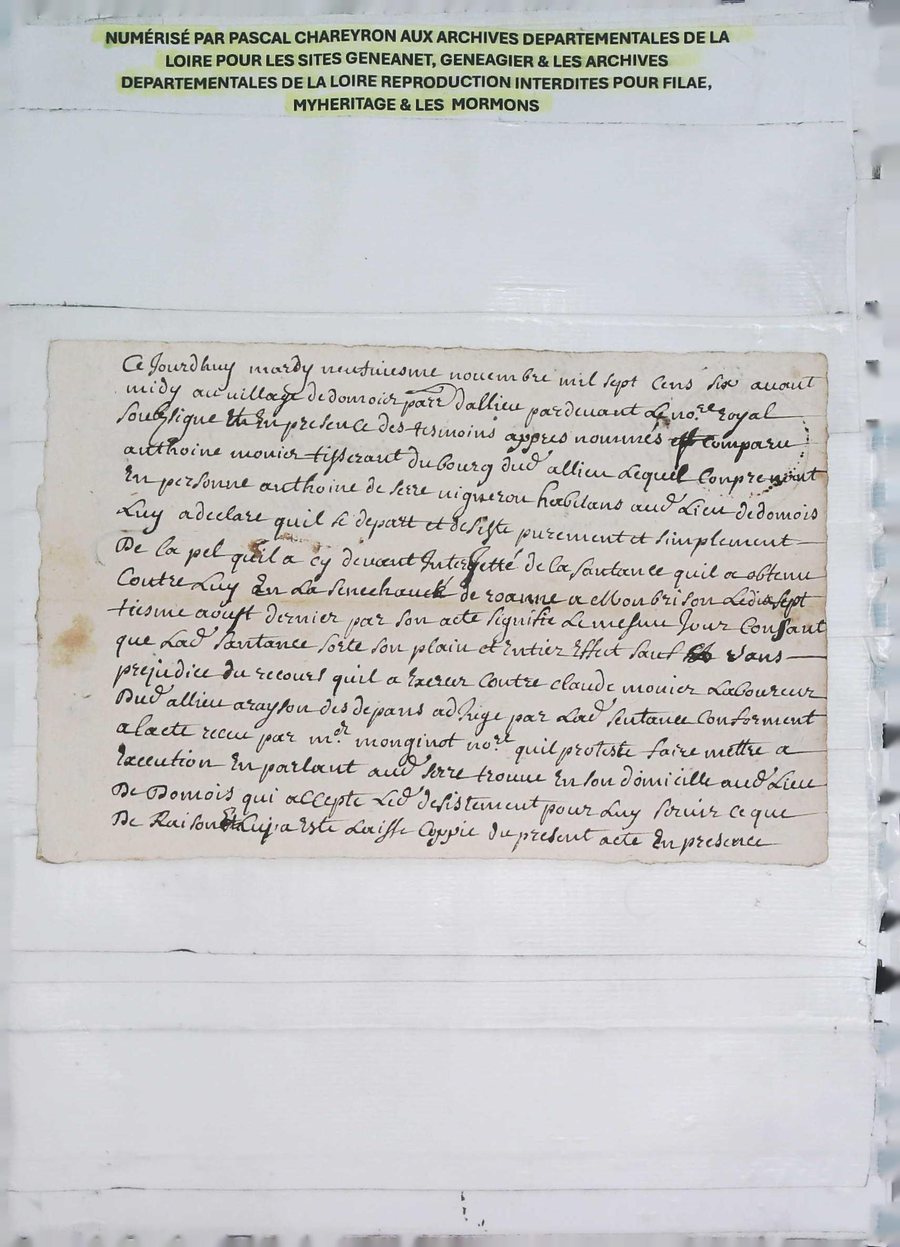 NUMÉRISÉ PAR PASCAL CHAREYRON AUX ARCHIVES DEPARTEMENTALES DE LA
LOIRE POUR LES SITES GENEANET, GENEAGIER & LES ARCHIVES
DEPARTEMENTALES DE LA LOIRE REPRODUCTION INTERDITES POUR FILAE,
MYHERITAGE & LES MORMONS
Ce Jourdhuy mardy neufuiesme novembre mil sept Cens six avant
midy au village de domois parr dallieu pardevant Le no.re royal
soubsigne En presence des tesmoins appres nommés comparu
anthoine monier tisserant du bourg dud allieu Lequel Comprenant
En personne anthoine de serre vigneron habitans aud Lieu de domois
Luy a declare quil se depart et desiste purement et simplement
De la pel quil a cy devant Interjetté de la santance quil a obtenu
Contre Luy En La Senechaucé de roanne a Monbrison Le dix sept
tiesme aoust dernier par son acte signifie Le mesme Jour Consant
que Lad santance sorte son plain et Entier Effect sauf sans
prejudice du recours quil a Exercer Contre claude monier Laboureur
Dud allieu a rayson des depans adjuge par Lad sentance Conforment
a lacte receu par m.er monginot no.re quil proteste faire mettre a
Execution En parlant aud serre trouve En son domicille aud Lieu
De Domois qui accepte Led desistement pour Luy servir ce que
De Raison Luy a Este Laisse Coppie du present acte En presence